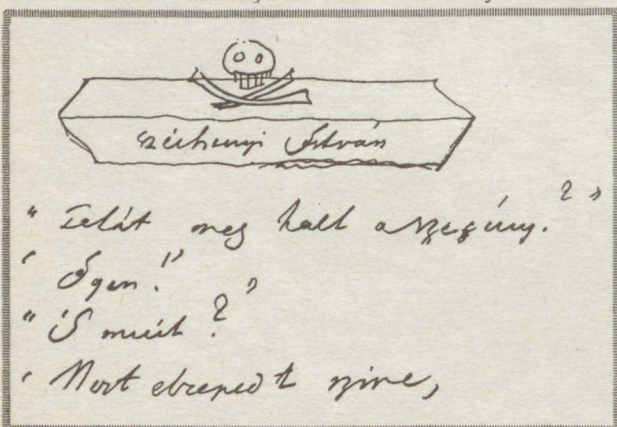 széchenyi István
" Tehát meg halt a szegény. ? "
' Igen ! '
" S miért ? "
' Mert elrepedt szive,